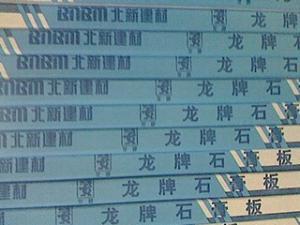 BNBM北新建材 龙牌石
BNBM北新建材 龙牌石
BNBM北新建材 龙牌石
BNBM北新建材 龙牌石
BNBM北新建材 龙牌石膏
BNBM北新建材 龙牌石膏
北新建材 龙牌石膏板
新建材 龙牌石膏板
建材 龙牌石膏板